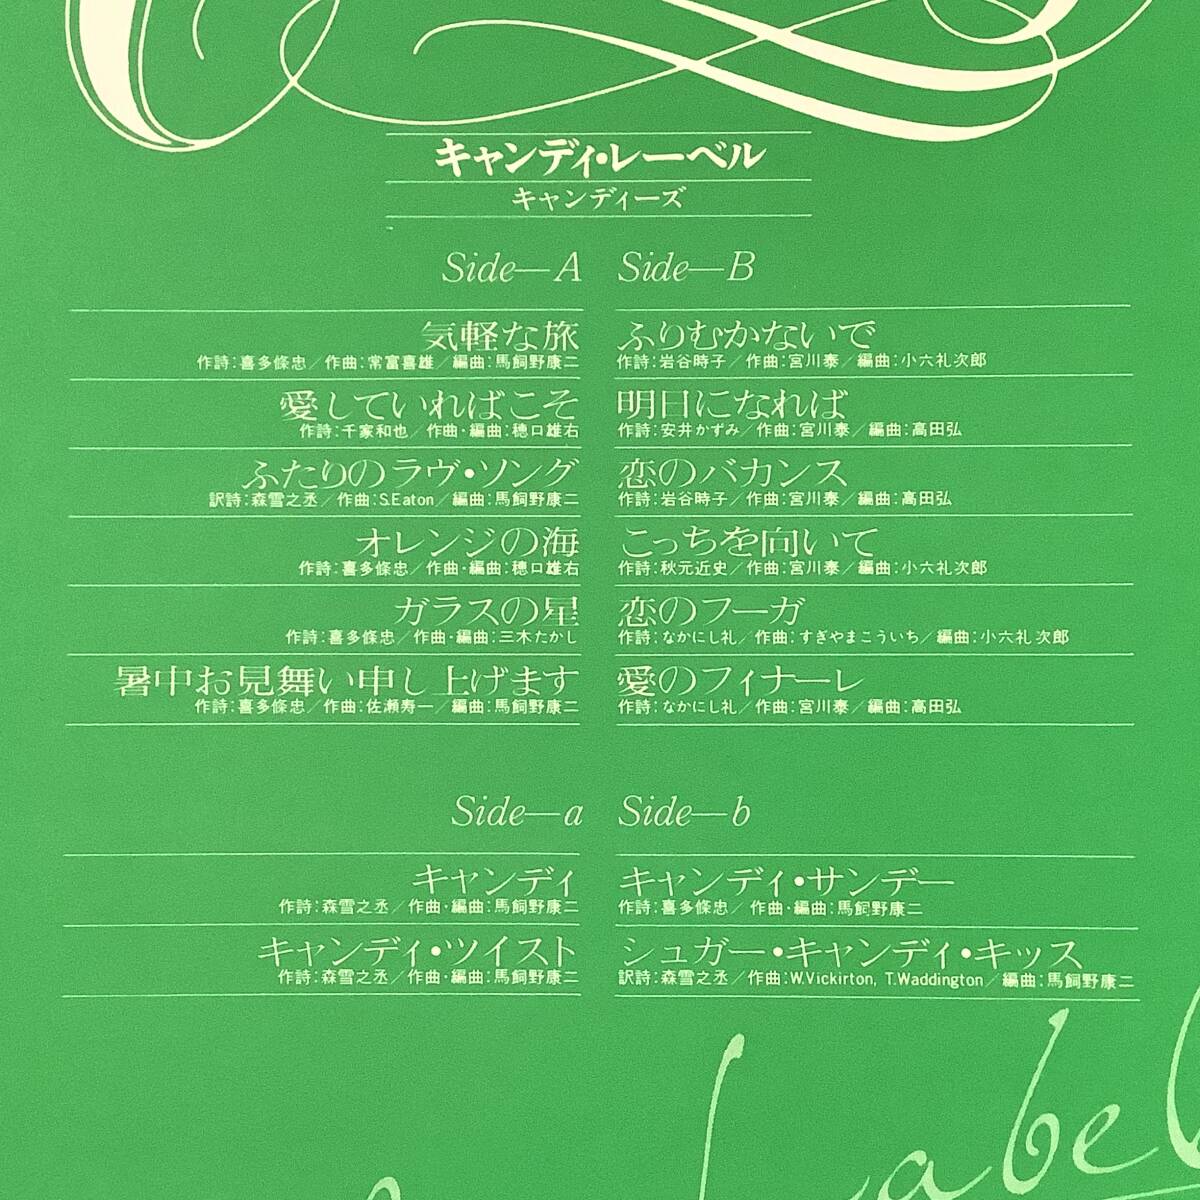 キャンディ・レーベル
キャンディーズ
Side—A
気軽な旅
作詩：喜多條忠／作曲：常富喜雄／編曲：馬飼野康二
愛していればこそ
作詩：千家和也／作曲・編曲：穂口雄右
ふたりのラヴ・ソング
訳詩：森雪之丞／作曲：S.Eaton／編曲：馬飼野康二
オレンジの海
作詩：喜多條忠／作曲・編曲：穂口雄右
ガラスの星
作詩：喜多條忠／作曲・編曲：三木たかし
暑中お見舞い申し上げます
作詩：喜多條忠／作曲：佐瀬寿一／編曲：馬飼野康二
Side—B
ふりむかないで
作詩：岩谷時子／作曲：宮川泰／編曲：小六礼次郎
明日になれば
作詩：安井かずみ／作曲：宮川泰／編曲：高田弘
恋のバカンス
作詩：岩谷時子／作曲：宮川泰／編曲：高田弘
こっちを向いて
作詩：秋元近史／作曲：宮川泰／編曲：小六礼次郎
恋のフーガ
作詩：なかにし礼／作曲：すぎやまこういち／編曲：小六礼次郎
愛のフィナーレ
作詩：なかにし礼／作曲：宮川泰／編曲：高田弘
Side—a
キャンディ
作詩：森雪之丞／作曲・編曲：馬飼野康二
キャンディ・ツイスト
作詩：森雪之丞／作曲・編曲：馬飼野康二
Side—b
キャンディ・サンデー
作詩：喜多條忠／作曲・編曲：馬飼野康二
シュガー・キャンディ・キッス
訳詩：森雪之丞／作曲：W.Vickirton, T.Waddington／編曲：馬飼野康二
Label